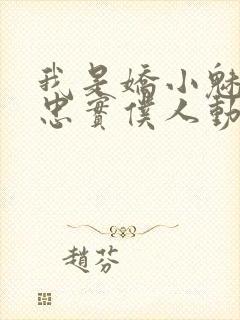 我是嬌小魅
忠實僕人動
趙芬